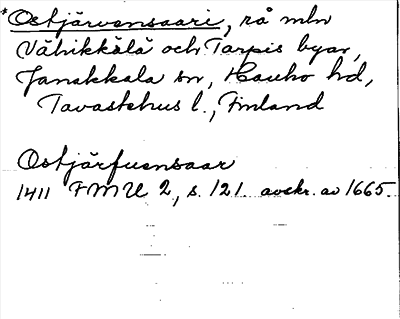 *Ostjärvensaari, rå mln
Vähikkälä och Tarpis byar,
Janakkala sn, Hauho hd,
Tavastehus l., Finland
Ostjärfuensaar
1411 FMU 2, s. 121. avskr. av 1665.